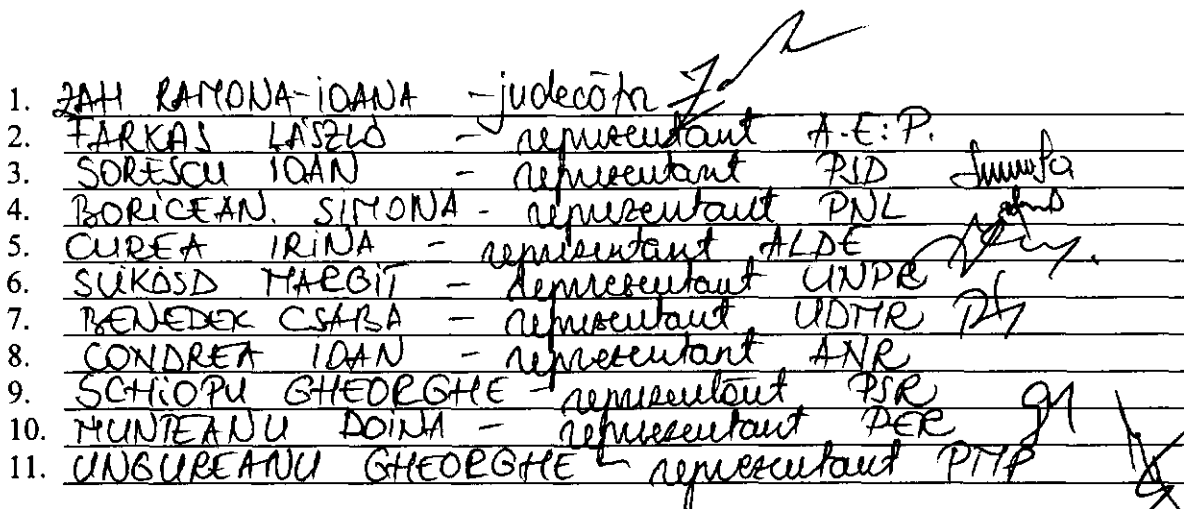 1. ZAH RAMONA-IOANA - judecător
2. FARKAS LÁSZLÓ - reprezentant A.E.P.
3. SORESCU IOAN - reprezentant PSD
4. BORICEAN. SIMONA - reprezentant PNL
5. CUREA IRINA - reprezentant ALDE
6. SÜKÖSD MARGIT - reprezentant UNPR
7. BENEDEK CSABA - reprezentant UDMR
8. CONDREA IOAN - reprezentant ANR
9. SCHIOPU GHEORGHE - reprezentant PSR
10. MUNTEANU DOINA - reprezentant PER
11. UNGUREANU GHEORGHE - reprezentant PMP